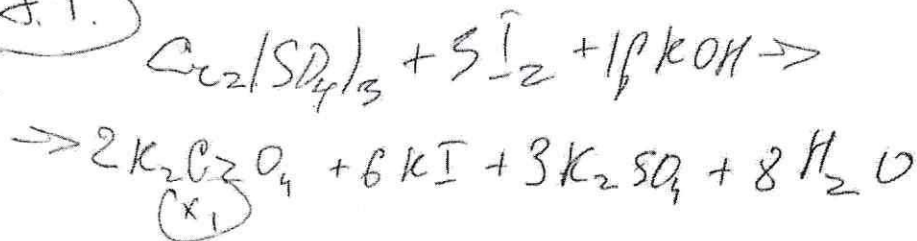 Cr₂(SO₄)₃ + 3I₂ + 16KOH →
→ 2K₂CrO₄ + 6KI + 3K₂SO₄ + 8H₂O
(X₁)